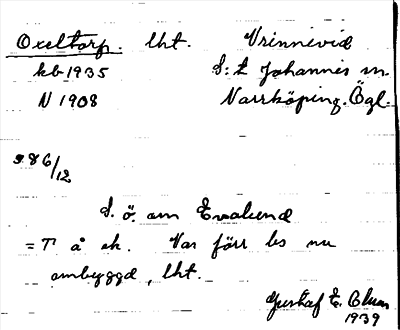 Oxeltorp. lht. Vrinnevid
kb 1935 S:t Johannis sn.
N 1908 Norrköping. Ögl.
986/12
S. ö. om Eralund
= T å ek. Var förr bs nu
ombyggd, lht.
Gustaf E. Clum
1939